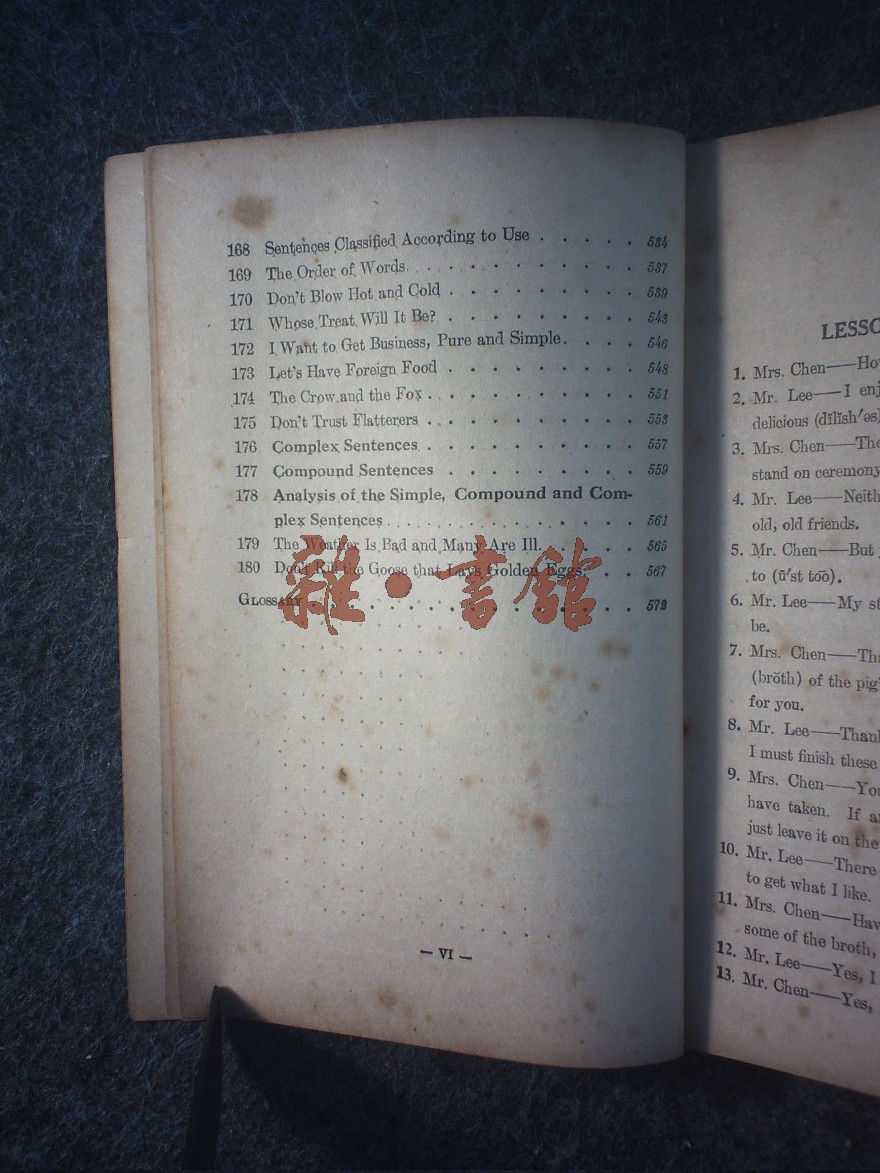 168 Sentences Classified According to Use . . . . . 534
169 The Order of Words. . . . . . . . . . . 537
170 Don't Blow Hot and Cold . . . . . . . . . 539
171 Whose Treat Will It Be? . . . . . . . . . 543
172 I Want to Get Business, Pure and Simple. . . . 546
173 Let's Have Foreign Food . . . . . . . . . 548
174 The Crow and the Fox . . . . . . . . . . 551
175 Don't Trust Flatterers . . . . . . . . . . 553
176 Complex Sentences . . . . . . . . . . 557
177 Compound Sentences . . . . . . . . . 559
178 Analysis of the Simple, Compound and Com-
plex Sentences . . . . . . . . . . . . 561
179 The Weather Is Bad and Many Are Ill. . . . . 565
180 Don't Kill the Goose that Lays Golden Eggs. . . 567
Glossary . . . . . . . . . . . . . 579
雜·書館
— VI —
LESSO
1. Mrs. Chen——Ho
2. Mr. Lee——I enj
delicious (dĭlĭsh'əs)
3. Mrs. Chen——The
stand on ceremony
4. Mr. Lee——Neith
old, old friends.
5. Mr. Chen——But
to (ū'st too).
6. Mr. Lee——My st
be.
7. Mrs. Chen——Th
(brŏth) of the pig'
for you.
8. Mr. Lee——Thank
I must finish these
9. Mrs. Chen——You
have taken. If a
just leave it on the
10. Mr. Lee——There
to get what I like.
11. Mrs. Chen——Hav
some of the broth,
12. Mr. Lee——Yes, I
13. Mr. Chen——Yes,